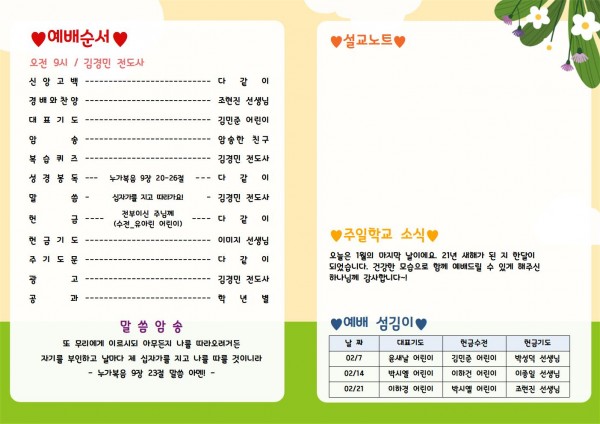 ♥예배순서♥
오전 9시 / 김경민 전도사
신앙고백 ---------------------------- 다 같 이
경배와찬양 ---------------------------- 조현진 선생님
대표기도 ---------------------------- 김민준 어린이
암 송 ---------------------------- 암송한 친구
복습퀴즈 ---------------------------- 김경민 전도사
성경봉독 --- 누가복음 9장 20-26절 --- 다 같 이
말 씀 - 십자가를 지고 따라가요! - 김경민 전도사
헌 금 ---- 전부이신 주님께 ---- 다 같 이
(수전_유아린 어린이)
헌금기도 ---------------------------- 이미지 선생님
주기도문 ---------------------------- 다 같 이
광 고 ---------------------------- 김경민 전도사
공 과 ---------------------------- 학 년 별
말씀암송
또 무리에게 이르시되 아무든지 나를 따라오려거든
자기를 부인하고 날마다 제 십자가를 지고 나를 따를 것이니라
- 누가복음 9장 23절 말씀 아멘! -
♥설교노트♥
♥주일학교 소식♥
오늘은 1월의 마지막 날이에요. 21년 새해가 된 지 한달이
되었습니다. 건강한 모습으로 함께 예배드릴 수 있게 해주신
하나님께 감사합니다~!
♥예배 섬김이♥
날 짜 대표기도 헌금수전 헌금기도
02/7 윤새날 어린이 김민준 어린이 박성덕 선생님
02/14 박시엘 어린이 이하건 어린이 이종일 선생님
02/21 이하경 어린이 박시엘 어린이 조현진 선생님